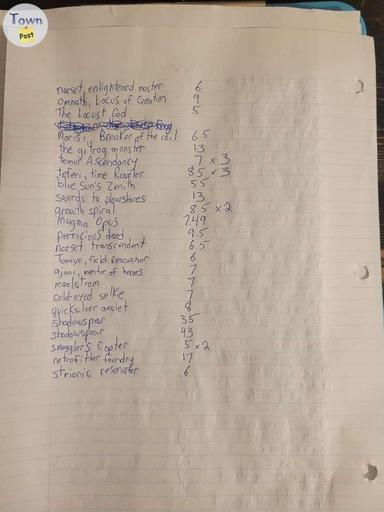 Town
Post
narset, enlightened master 6
Omnath, Locus of Creation 9
The Locust God 5
Moris, Breaker of the coil 6.5
the gitrog monster 13
temur Ascendancy 7 x 3
teferi, time Raveler 8.5 x 3
blue Sun's Zenith 5.5
swords to plowshares 13
growth spiral 8.5 x 2
magma Opus 7.49
pernicious deed 9.5
narset transcendent 6.5
Tamiyo, field Researcher 6
ajani, mentor of heroes 7
maelstrom 7
cold-eyed selkie 7
quicksilver amulet 8
shadowspear 35
shadowspear 43
smugglers Copter 5 x 2
retrofitter foundry 17
strionic resonator 6